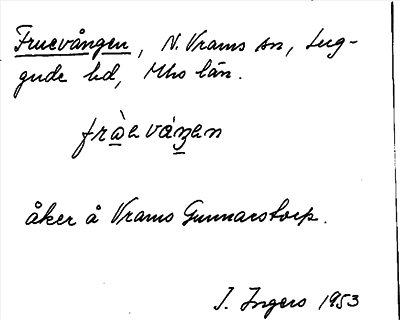 Fruevången, N. Vrams sn, Lug-
gude hd, Mho län.
fràeváŋen
åker å Vrams Gunnarstorp.
I. Ingers 1953